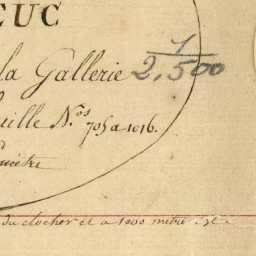 CUC
la Gallerie 1/2,500
uille N.os 705 a 1016.
du clocher et a 1000 metre est